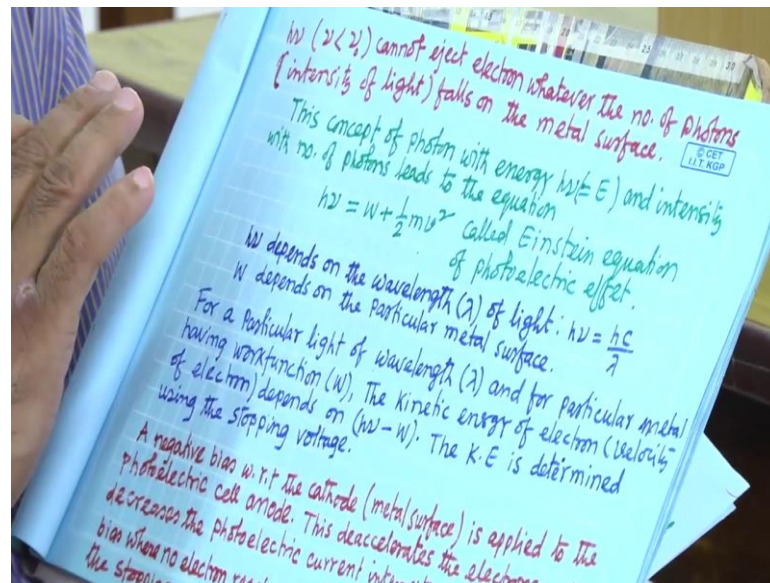 hν (ν<ν₀) cannot eject electron whatever the no. of photons
(intensity of light) falls on the metal surface.
© CET
I.I.T. KGP
This concept of photon with energy hν (= E) and intensity
with no. of photons leads to the equation
hν = W + 1/2 mv² called Einstein equation
of photoelectric effet.
hν depends on the wavelength (λ) of light : hν = hc/λ
W depends on the particular metal surface.
For a particular light of wavelength (λ) and for particular metal
having workfunction (W), The Kinetic energy of electron (velocity
of electron) depends on (hν – W). The K.E is determined
using the stopping voltage.
A negative bias w.r.t the cathode (metal surface) is applied to the
photoelectric cell anode. This deaccelerates the electrons
decreases the photoelectric current
bias where no electron
the